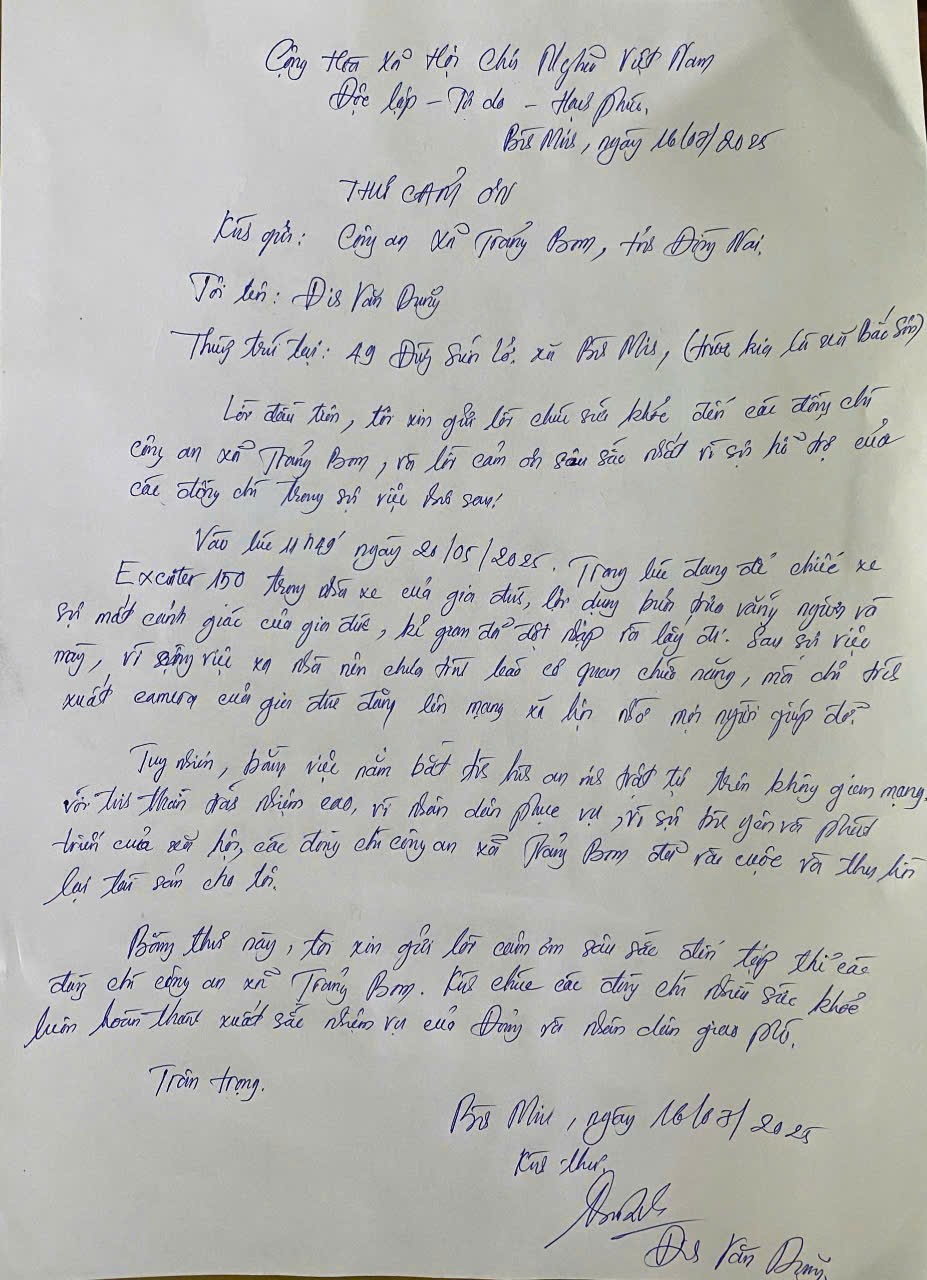 Cộng Hòa Xã Hội Chủ Nghĩa Việt Nam
Độc lập - Tự do - Hạnh phúc.
Bình Minh, ngày 16/07/2025
THƯ CẢM ƠN
Kính gửi: Công an xã Trảng Bom, tỉnh Đồng Nai.
Tôi tên: Đinh Văn Dũng
Thường trú tại: 49 Đường xã Bình Minh, (trước kia là xã Bắc Sơn)
Lời đầu tiên, tôi xin gửi lời chúc sức khỏe đến các đồng chí
công an xã Trảng Bom, và lời cảm ơn sâu sắc nhất vì sự hỗ trợ của
các đồng chí trong sự việc như sau:
Vào lúc 11h49' ngày 20/05/2025. Trong lúc đang để chiếc xe
Exciter 150 trong nhà xe của gia đình, lợi dụng buổi trưa vắng người và
sự mất cảnh giác của gia đình, kẻ gian đã đột nhập và lấy đi. Sau sự việc
này, vì công việc xa nhà nên chưa trình báo cơ quan chức năng, mà chỉ trích
xuất camera của gia đình đăng lên mạng xã hội nhờ mọi người giúp đỡ.
Tuy nhiên, bằng việc nắm bắt tình hình an ninh trật tự trên không gian mạng,
với tinh thần trách nhiệm cao, vì nhân dân phục vụ, vì sự bình yên và phát
triển của xã hội, các đồng chí công an xã Trảng Bom đã vào cuộc và thu hồi
lại tài sản cho tôi.
Bằng thư này, tôi xin gửi lời cảm ơn sâu sắc đến tập thể các
đồng chí công an xã Trảng Bom. Kính chúc các đồng chí nhiều sức khoẻ
luôn hoàn thành xuất sắc nhiệm vụ của Đảng và nhân dân giao phó.
Trân trọng.
Bình Minh, ngày 16/07/2025
Kính thư.
Đinh Văn Dũng